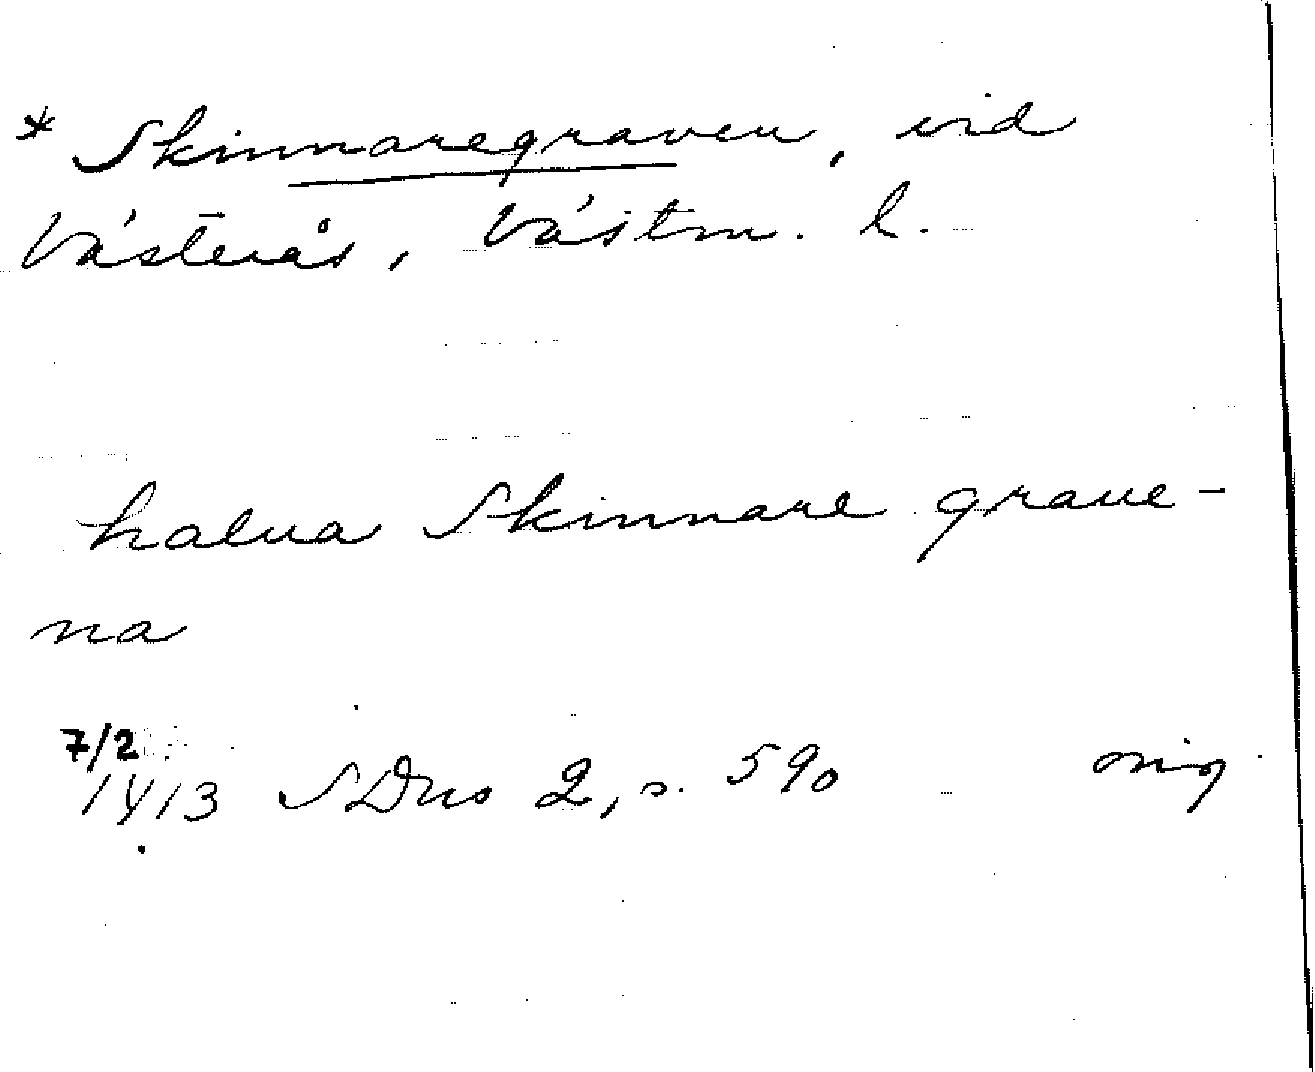 * Skinnaregraven, vid
Västerås, Västm. l.
halua Skinnare graue-
na
7/2
1413 SDns 2, s. 590 orig